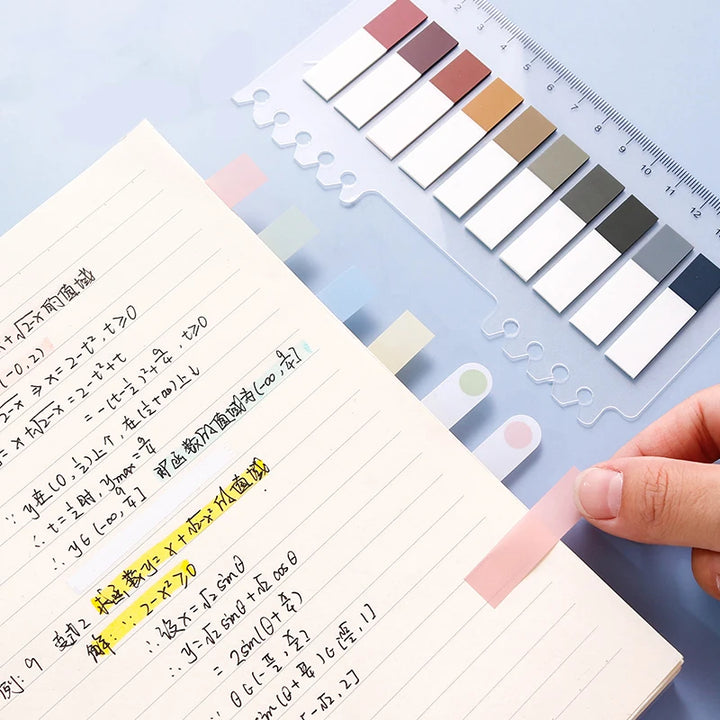 2 3 4 5 6 7 8 9 10 11 12
+√2-x 的值域
(-0,2)
√2-x ⇒ x=2-t², t≥0
= x+√2-x = 2-t²+t
= -(t-1/2)²+9/4, t≥0
∵ y在(0,1/2)上个, 在(1/2,+∞)上↓
∴ t=1/2时, ymax=9/4
∴ y∈(-∞,9/4] 即函数的值域为(-∞,9/4]
例:9 变式2 求函数y=x+√2-x²的值域
解: ∵ 2-x²≥0
∴ 设x=√2 sinθ
∴ y=√2 sinθ+√2 cosθ
= 2sin(θ+π/4)
∵ θ∈[-π/2,π/2]
sin(θ+π/4)∈[√2/2,1]
[-√2,2]